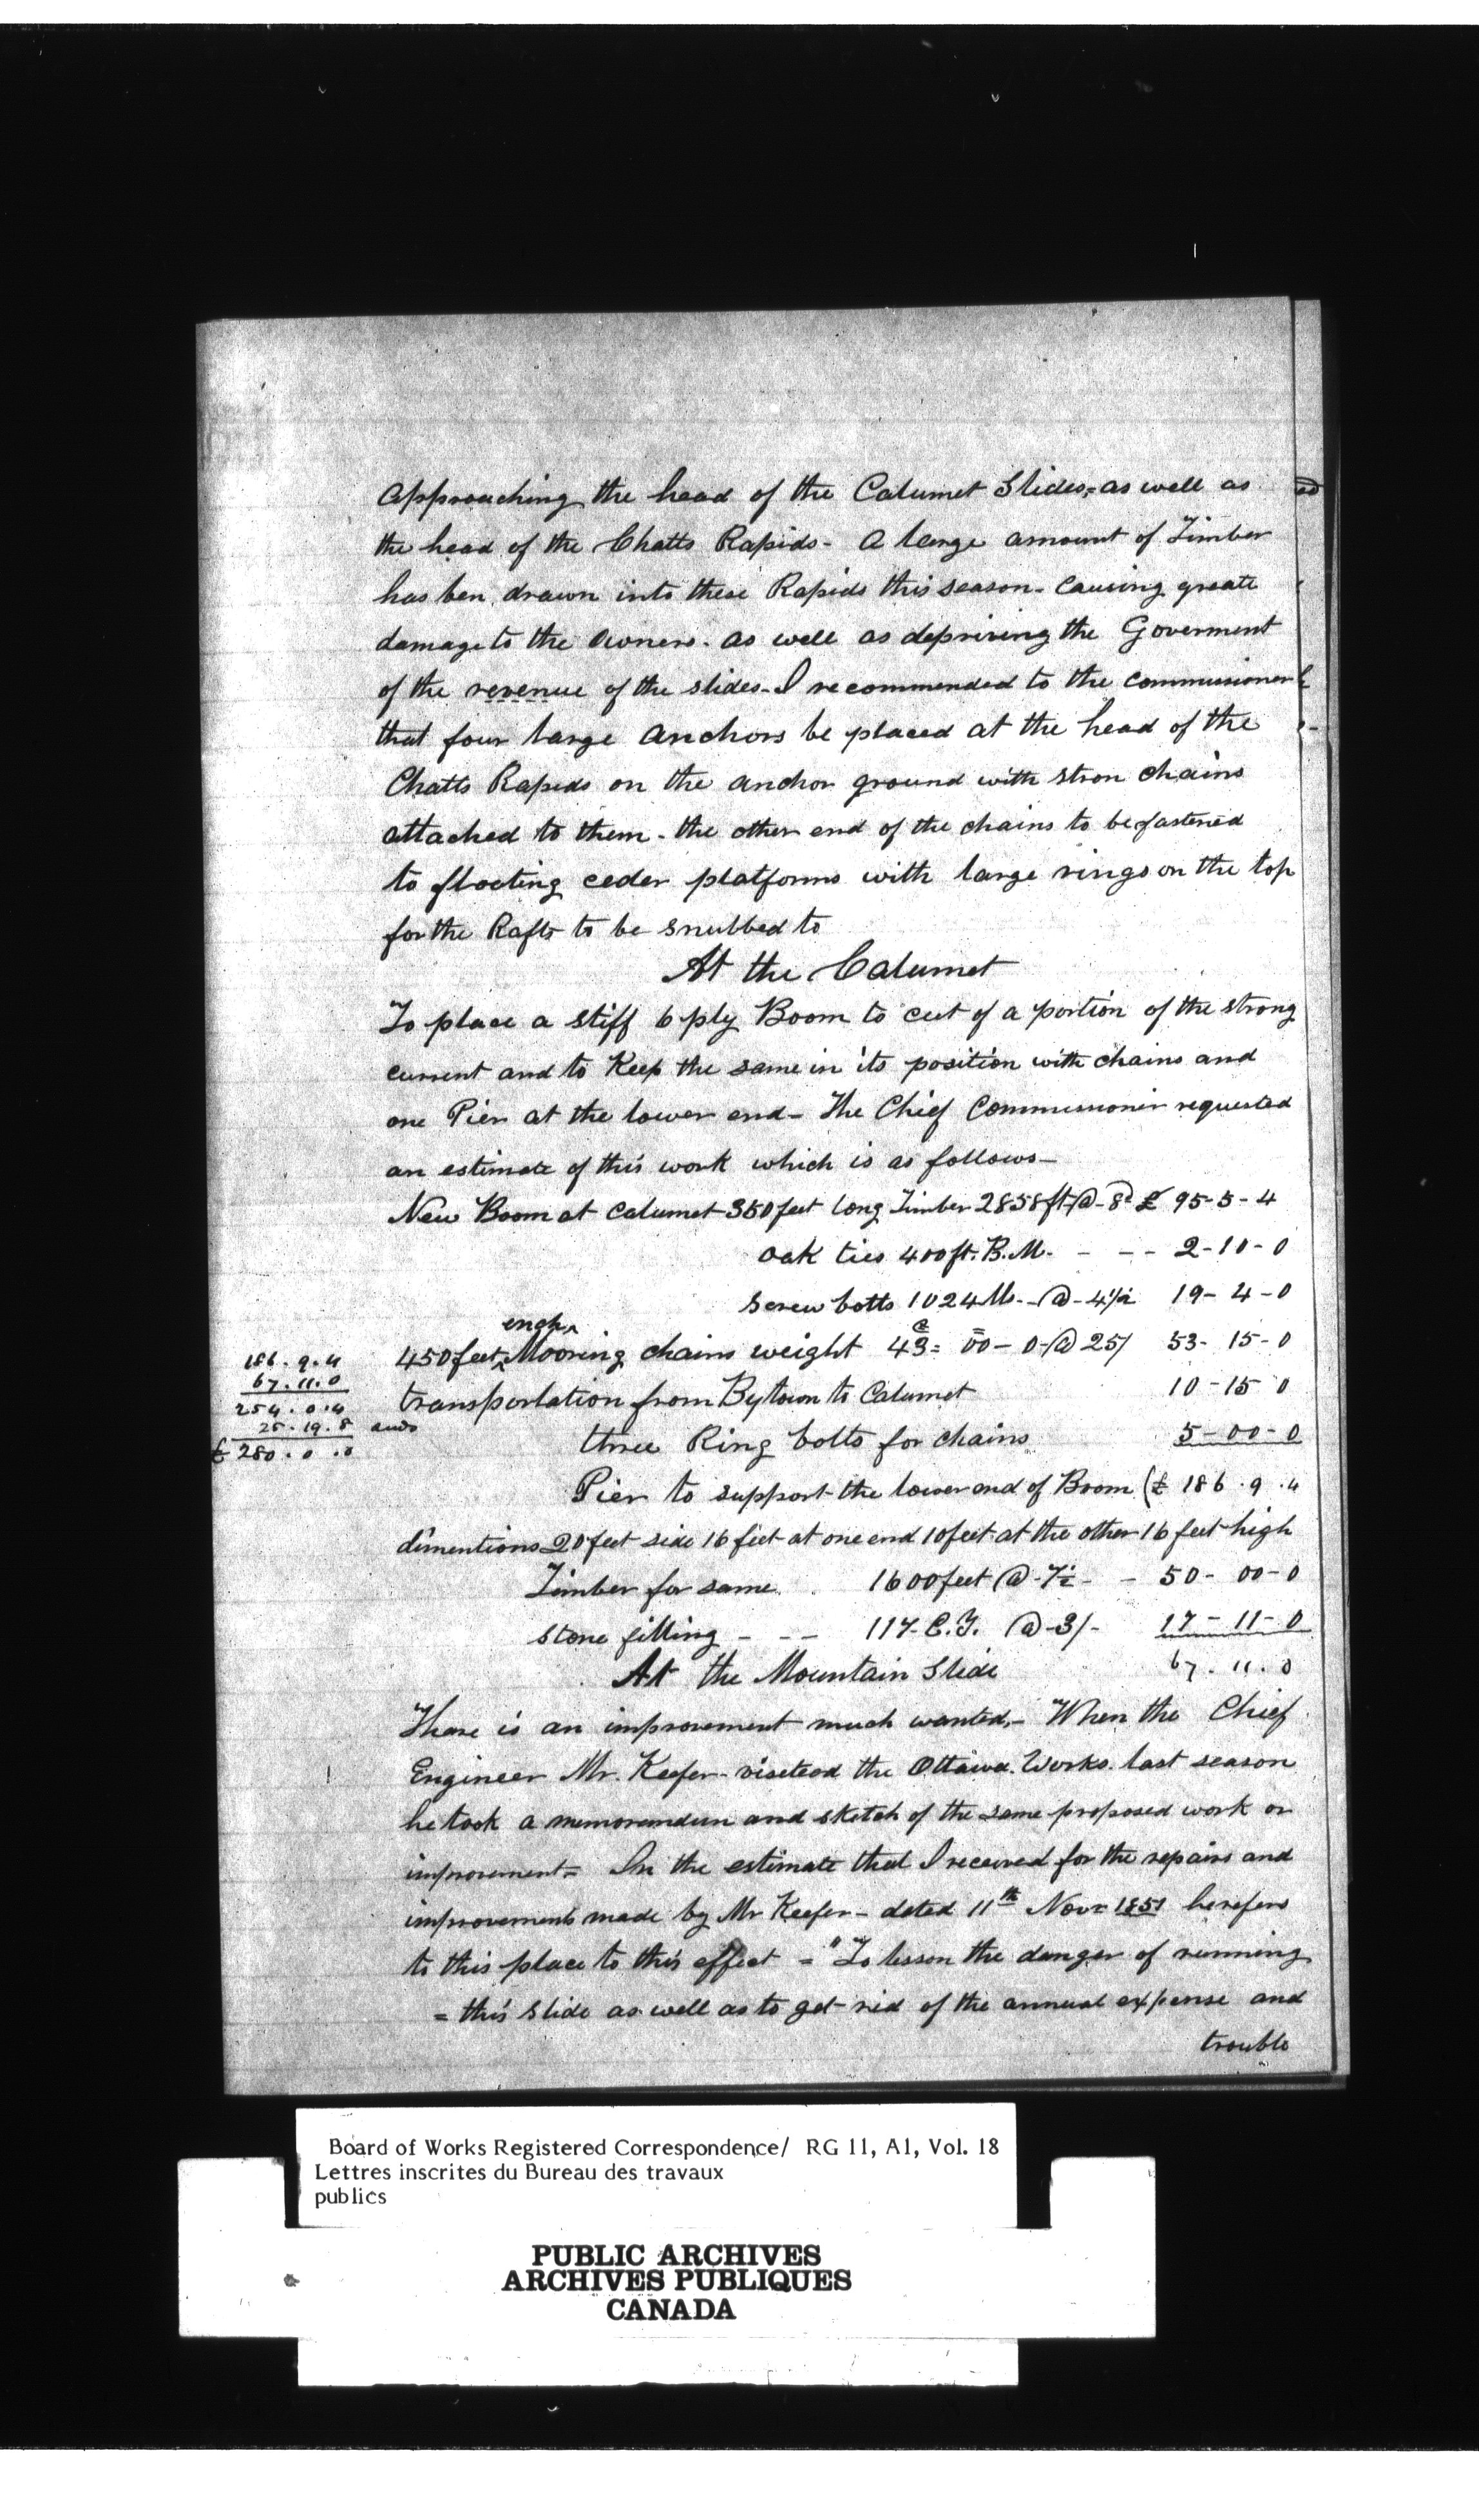 approaching the head of the Calumet Slides, as well as
the head of the Chatts Rapids - A large amount of Timber
has ben drawn into these Rapids this season - causing greate
damage to the Owners - as well as depriving the Goverment
of the revenue of the slides - I recommended to the commissioner
that four large anchors be placed at the head of the
Chatts Rapids on the anchor ground with stron chains
attached to them - the other end of the chains to be fastened
to floeting ceder platforms with large rings on the top
for the Rafts to be snubbed to
At the Calumet
To place a stiff 6 ply Boom to cut of a portion of the strong
current and to Keep the same in its position with chains and
one Pier at the lower end - The Chief Commissioner requested
an estimate of this work which is as follows -
New Boom at Calumet 350 feet long Timber 2858 ft @ 8d £ 95-5-4
Oak ties 400 ft. B.M. - - - 2-10-0
Screw bolts 1024 lb - @ - 4½ 19-4-0
450 feet Mooring chains weight 43 = 00 - 0 - @ 25/ 53-15-0
transportation from Bytown to Calumet 10-15-0
three Ring bolts for chains 5-00-0
186.9.4
67.11.0
254.0.4
25.19.8
£ 280.0.0
Pier to support the lower end of Boom (£ 186.9.4
dimentions 20 feet side 16 feet at one end 10 feet at the other 16 feet high
Timber for same 1600 feet @ 7½ - - 50-00-0
Stone filling - - - 117 - C.Y. @ 3/- 17-11-0
67.11.0
At the Mountain Slide
There is an improvement much wanted, - When the Chief
Engineer Mr. Keefer - viseteed the Ottawa Works last season
he took a memorandum and sketch of the same proposed work or
improvement = In the estimate that I received for the repairs and
improvements made by Mr Keefer - dated 11th Novr 1851 he refers
to this place to this effect = "To lesson the danger of running
= this Slide as well as to get rid of the annual expense and
trouble
Board of Works Registered Correspondence/ RG 11, A1, Vol. 18
Lettres inscrites du Bureau des travaux
publics
PUBLIC ARCHIVES
ARCHIVES PUBLIQUES
CANADA